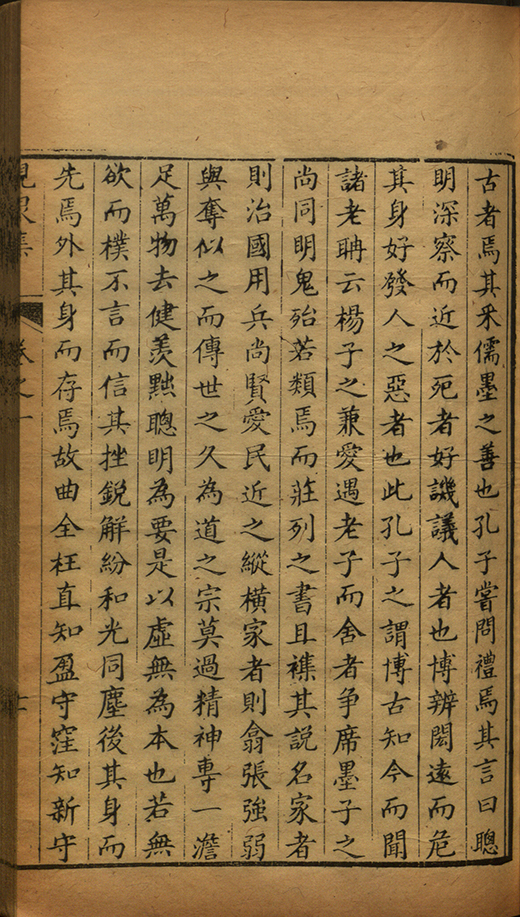 古者焉其釆儒墨之善也孔子嘗問禮焉其言曰聰
明深察而近於死者好譏議人者也博辨閎遠而危
其身好發人之惡者也此孔子之謂博古知今而聞
諸老聃云楊子之兼愛遇老子而舍者争席墨子之
尚同明鬼殆若類焉而莊列之書且襍其説名家者
則治國用兵尚賢愛民近之縱横家者則翕張強弱
與奪似之而傳世之久為道之宗莫過精神専一澹
足萬物去健羡黜聰明為要是以虛無為本也若無
欲而樸不言而信其挫鋭解紛和光同塵後其身而
先焉外其身而存焉故曲全枉直知盈守窪知新守
峴泉集 卷之一